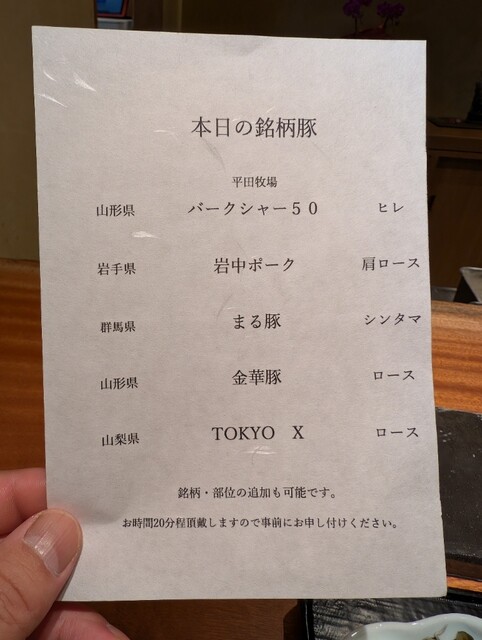 本日の銘柄豚
平田牧場
山形県 バークシャー５０ ヒレ
岩手県 岩中ポーク 肩ロース
群馬県 まる豚 シンタマ
山形県 金華豚 ロース
山梨県 TOKYO X ロース
銘柄・部位の追加も可能です。
お時間20分程頂戴しますので事前にお申し付けください。